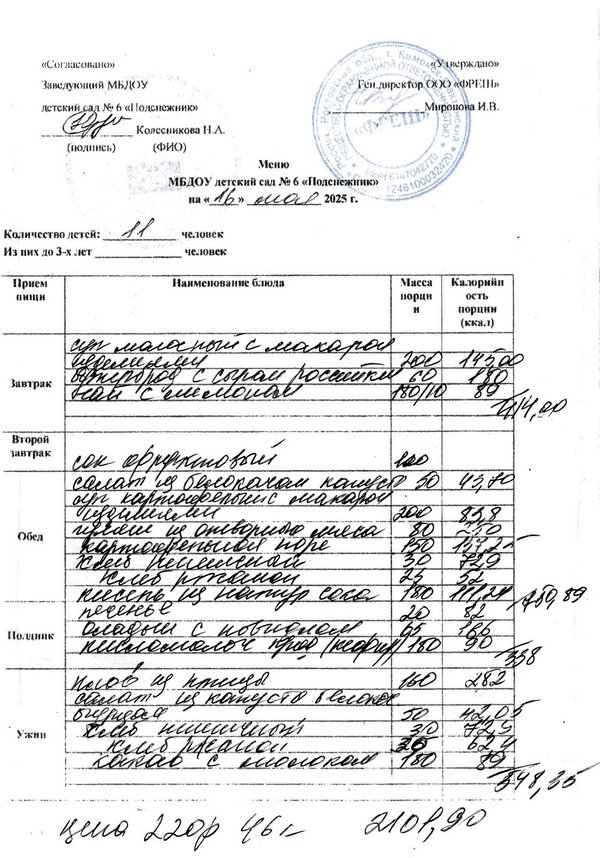 «Согласовано» «Утверждаю»
Заведующий МБДОУ Ген.директор ООО «ФРЕШ»
детский сад № 6 «Подснежник» Миронова И.В.
Колесникова Н.А.
(подпись) (ФИО)
«ФРЕШ»
ИНН 6147042770
1246100032420
Меню
МБДОУ детский сад № 6 «Подснежник»
на « 16 » мая 2025 г.
Количество детей: 11 человек
Из них до 3-х лет человек
Прием пищи Наименование блюда Масса порции Калорийность порции (ккал)
Завтрак
суп молочный с макарон
изделиями 200 145,00
бутерброд с сыром российским 60 180
чай с лимоном 180/10 89
414,00
Второй завтрак
сок фруктовый 100
Обед
салат из белокочан капусты 50 43,70
суп картофельный с макарон
изделиями 200 83,8
гуляш из отварного мяса 80
картофельной пюре 150
хлеб пшеничный 30 72,9
хлеб ржаной 25 52
кисель из натур сока 180 111,24
750,89
Полдник
печенье 20 82
оладьи с повидлом 65 166
кисломолоч прод (кефир) 180 90
338
Ужин
плов из птицы 160 282
салат из капусты белокоч
50 42,05
хлеб пшеничный 30 72,9
хлеб ржаной 62,4
какао с молоком 180 89
548,35
цена 220р 46 к 2101,90